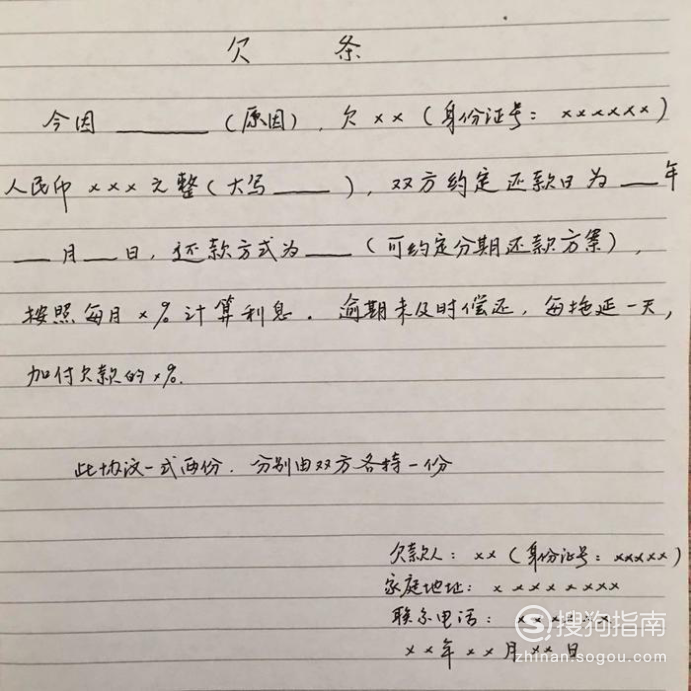 欠 条
今因______(原因),欠××(身份证号:××××××)
人民币×××元整(大写____),双方约定还款日为__年
__月__日,还款方式为___(可约定分期还款方案),
按照每月×%计算利息。逾期未及时偿还,每拖延一天,
加付欠款的×%.
此协议一式两份.分别由双方各持一份
欠款人:××(身份证号:×××××)
家庭地址:××××××××
联系电话:×××××××
××年××月××日
搜狗指南
zhinan.sogou.com